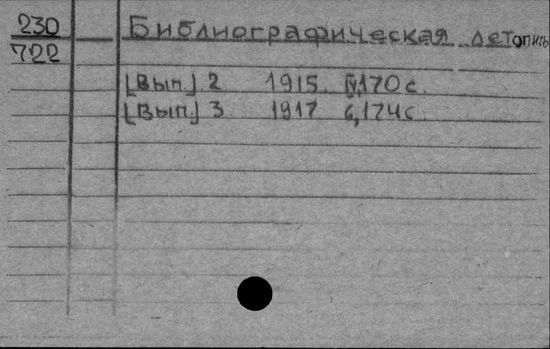 230 Библиографическая летопись
722
[Вып.] 2 1915. IV,170 с.
[Вып.] 3 1917 6,174 с